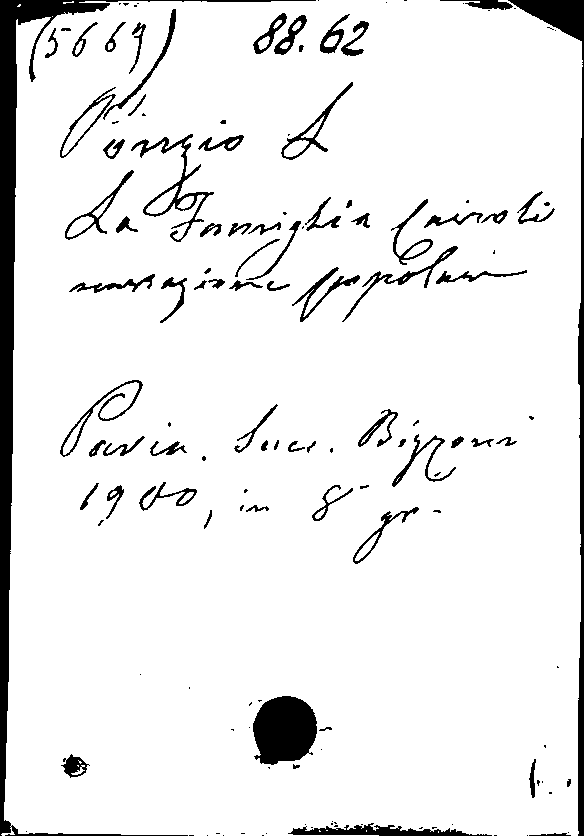 (5669) 88.62
Ponzio L
La Famiglia Cairoli
narrazione popolare
Pavia. Succ. Bizzoni
1900, in 8° gr.